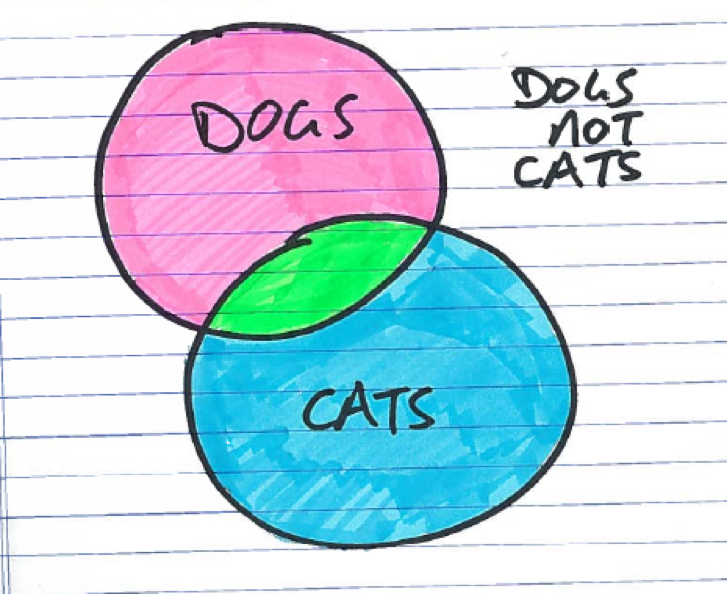 DOGS
DOGS
NOT
CATS
CATS